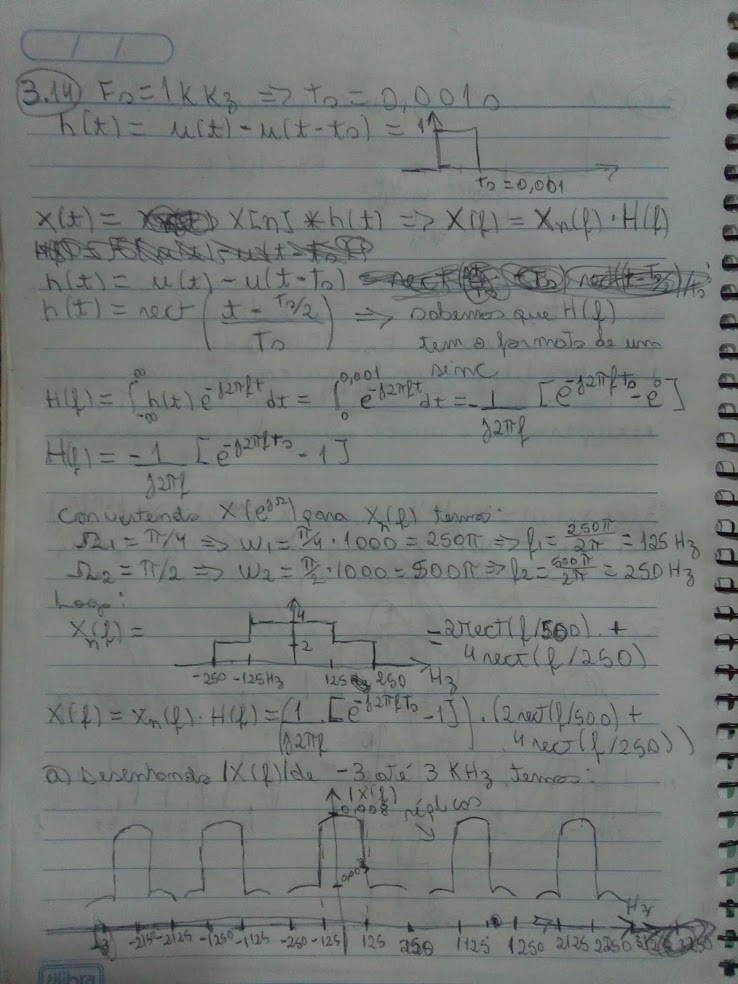 / /
3.14) Fs = 1 KHz => Ts = 0,001s
h(t) = u(t) - u(t-ts) = 1
Ts = 0,001
X(t) = X[n] * h(t) => X(f) = Xn(f) · H(f)
h(t) = u(t) - u(t-Ts)
h(t) = rect ( t - Ts/2 / Ts ) => sabemos que H(f)
tem o formato de um
sinc
H(f) = ∫_{-∞}^{∞} h(t) e^{-j2πft} dt = ∫_0^{0,001} e^{-j2πft} dt = -1/j2πf [e^{-j2πfTs} - e^0]
H(f) = -1/j2πf [e^{-j2πfTs} - 1]
Convertendo X(e^{jΩ}) para Xn(f) temos:
Ω1 = π/4 => w1 = π/4 · 1000 = 250π => f1 = 250π/2π = 125 Hz
Ω2 = π/2 => w2 = π/2 · 1000 = 500π => f2 = 500π/2π = 250 Hz
Logo:
Xn(f) = 4 = 2rect(f/500) +
2 4rect(f/250)
-250 -125Hz 125 250 Hz
X(f) = Xn(f) · H(f) = (1/j2πf · [e^{-j2πfTs} - 1]) · (2rect(f/500) +
4rect(f/250))
a) Desenhando |X(f)| de -3 até 3 KHz temos:
|X(f)
0,008 réplicas
0,003
Hz
-3 -2150 -2125 -1250 -1125 -250 -125 125 250 1125 1250 2125 2250
tilibra